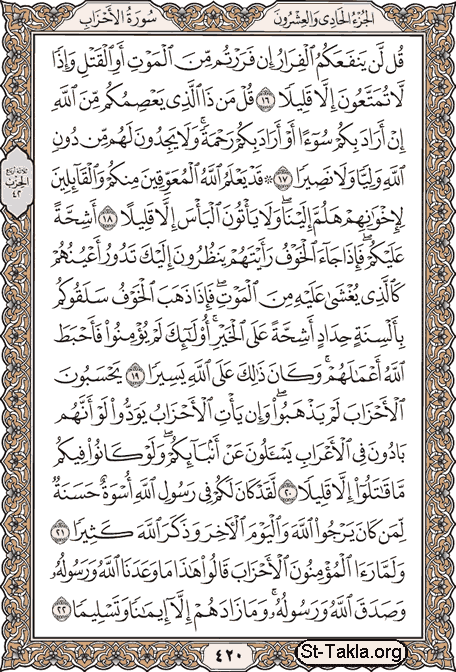 الجزء الحادي والعشرون
سورة الأحزاب
قُل لَّن يَنفَعَكُمُ ٱلْفِرَارُ إِن فَرَرْتُم مِّنَ ٱلْمَوْتِ أَوِ ٱلْقَتْلِ وَإِذًا
لَّا تُمَتَّعُونَ إِلَّا قَلِيلًا ١٦ قُلْ مَن ذَا ٱلَّذِى يَعْصِمُكُم مِّنَ ٱللَّهِ
إِنْ أَرَادَ بِكُمْ سُوٓءًا أَوْ أَرَادَ بِكُمْ رَحْمَةً ۚ وَلَا يَجِدُونَ لَهُم مِّن دُونِ
ٱللَّهِ وَلِيًّا وَلَا نَصِيرًا ١٧ ۞ قَدْ يَعْلَمُ ٱللَّهُ ٱلْمُعَوِّقِينَ مِنكُمْ وَٱلْقَآئِلِينَ
لِإِخْوَٰنِهِمْ هَلُمَّ إِلَيْنَا ۖ وَلَا يَأْتُونَ ٱلْبَأْسَ إِلَّا قَلِيلًا ١٨ أَشِحَّةً
عَلَيْكُمْ ۖ فَإِذَا جَآءَ ٱلْخَوْفُ رَأَيْتَهُمْ يَنظُرُونَ إِلَيْكَ تَدُورُ أَعْيُنُهُمْ
كَٱلَّذِى يُغْشَىٰ عَلَيْهِ مِنَ ٱلْمَوْتِ ۖ فَإِذَا ذَهَبَ ٱلْخَوْفُ سَلَقُوكُم
بِأَلْسِنَةٍ حِدَادٍ أَشِحَّةً عَلَى ٱلْخَيْرِ ۚ أُو۟لَٰٓئِكَ لَمْ يُؤْمِنُوا۟ فَأَحْبَطَ
ٱللَّهُ أَعْمَٰلَهُمْ ۚ وَكَانَ ذَٰلِكَ عَلَى ٱللَّهِ يَسِيرًا ١٩ يَحْسَبُونَ
ٱلْأَحْزَابَ لَمْ يَذْهَبُوا۟ ۖ وَإِن يَأْتِ ٱلْأَحْزَابُ يَوَدُّوا۟ لَوْ أَنَّهُم
بَادُونَ فِى ٱلْأَعْرَابِ يَسْـَٔلُونَ عَنْ أَنۢبَآئِكُمْ ۖ وَلَوْ كَانُوا۟ فِيكُم
مَّا قَٰتَلُوٓا۟ إِلَّا قَلِيلًا ٢٠ لَّقَدْ كَانَ لَكُمْ فِى رَسُولِ ٱللَّهِ أُسْوَةٌ حَسَنَةٌ
لِّمَن كَانَ يَرْجُوا۟ ٱللَّهَ وَٱلْيَوْمَ ٱلْـَٔاخِرَ وَذَكَرَ ٱللَّهَ كَثِيرًا ٢١
وَلَمَّا رَءَا ٱلْمُؤْمِنُونَ ٱلْأَحْزَابَ قَالُوا۟ هَٰذَا مَا وَعَدَنَا ٱللَّهُ وَرَسُولُهُۥ
وَصَدَقَ ٱللَّهُ وَرَسُولُهُۥ ۚ وَمَا زَادَهُمْ إِلَّآ إِيمَٰنًا وَتَسْلِيمًا ٢٢
ثلاثة أرباع
الحزب
٤٢
٤٢٠
St-Takla.org